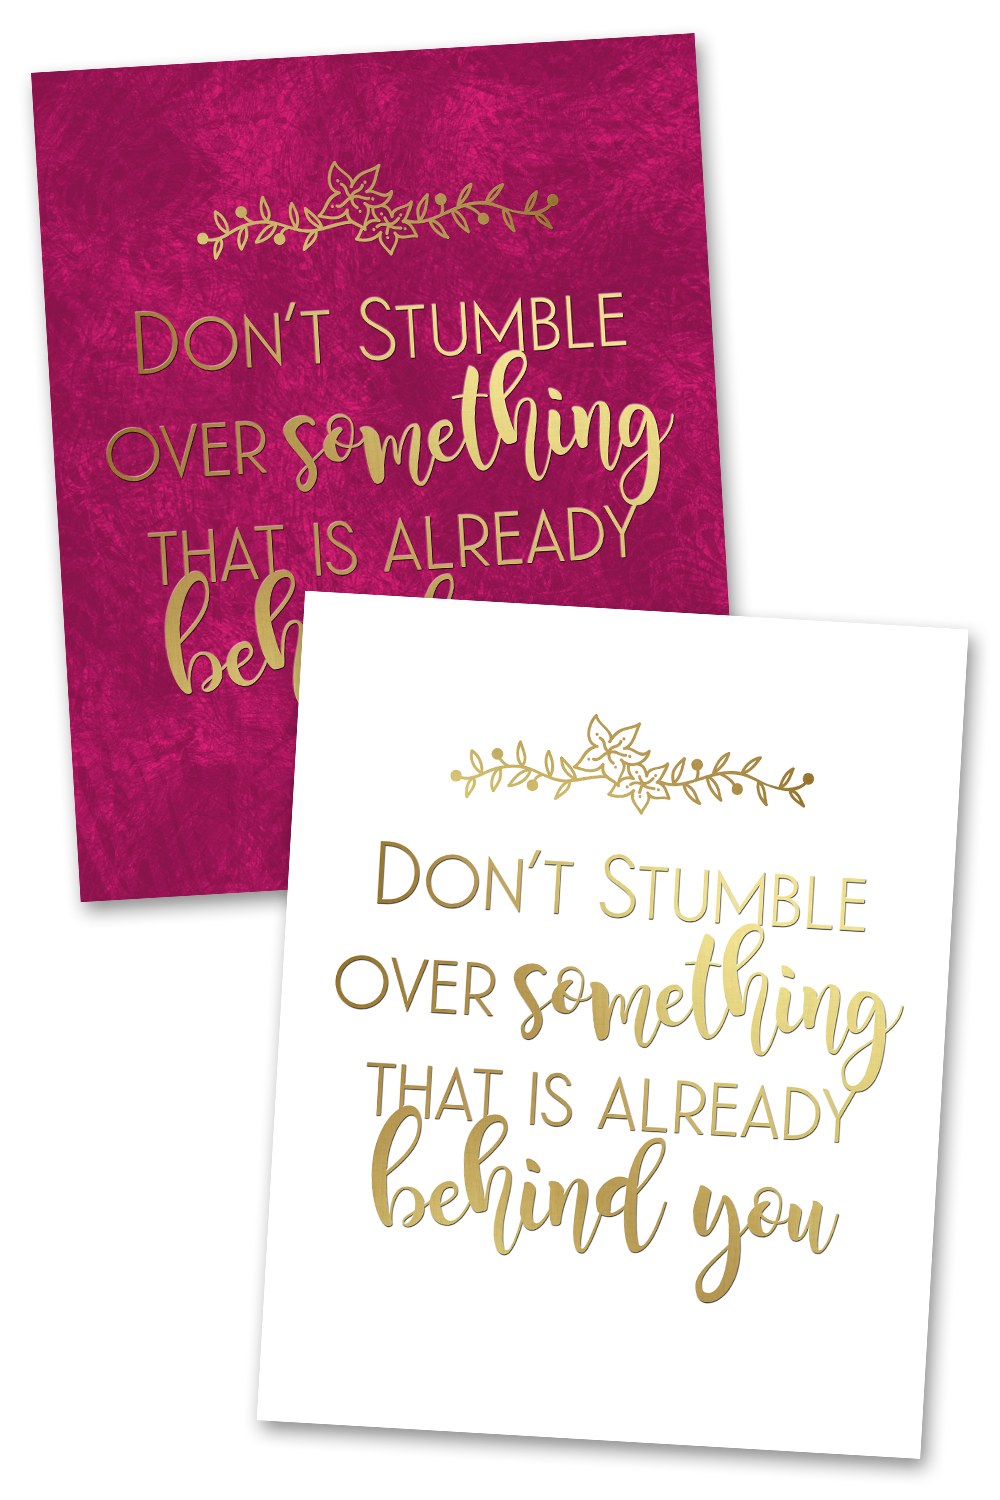 DON'T STUMBLE
OVER something
THAT IS ALREADY
beh
DON'T STUMBLE
OVER something
THAT IS ALREADY
behind you